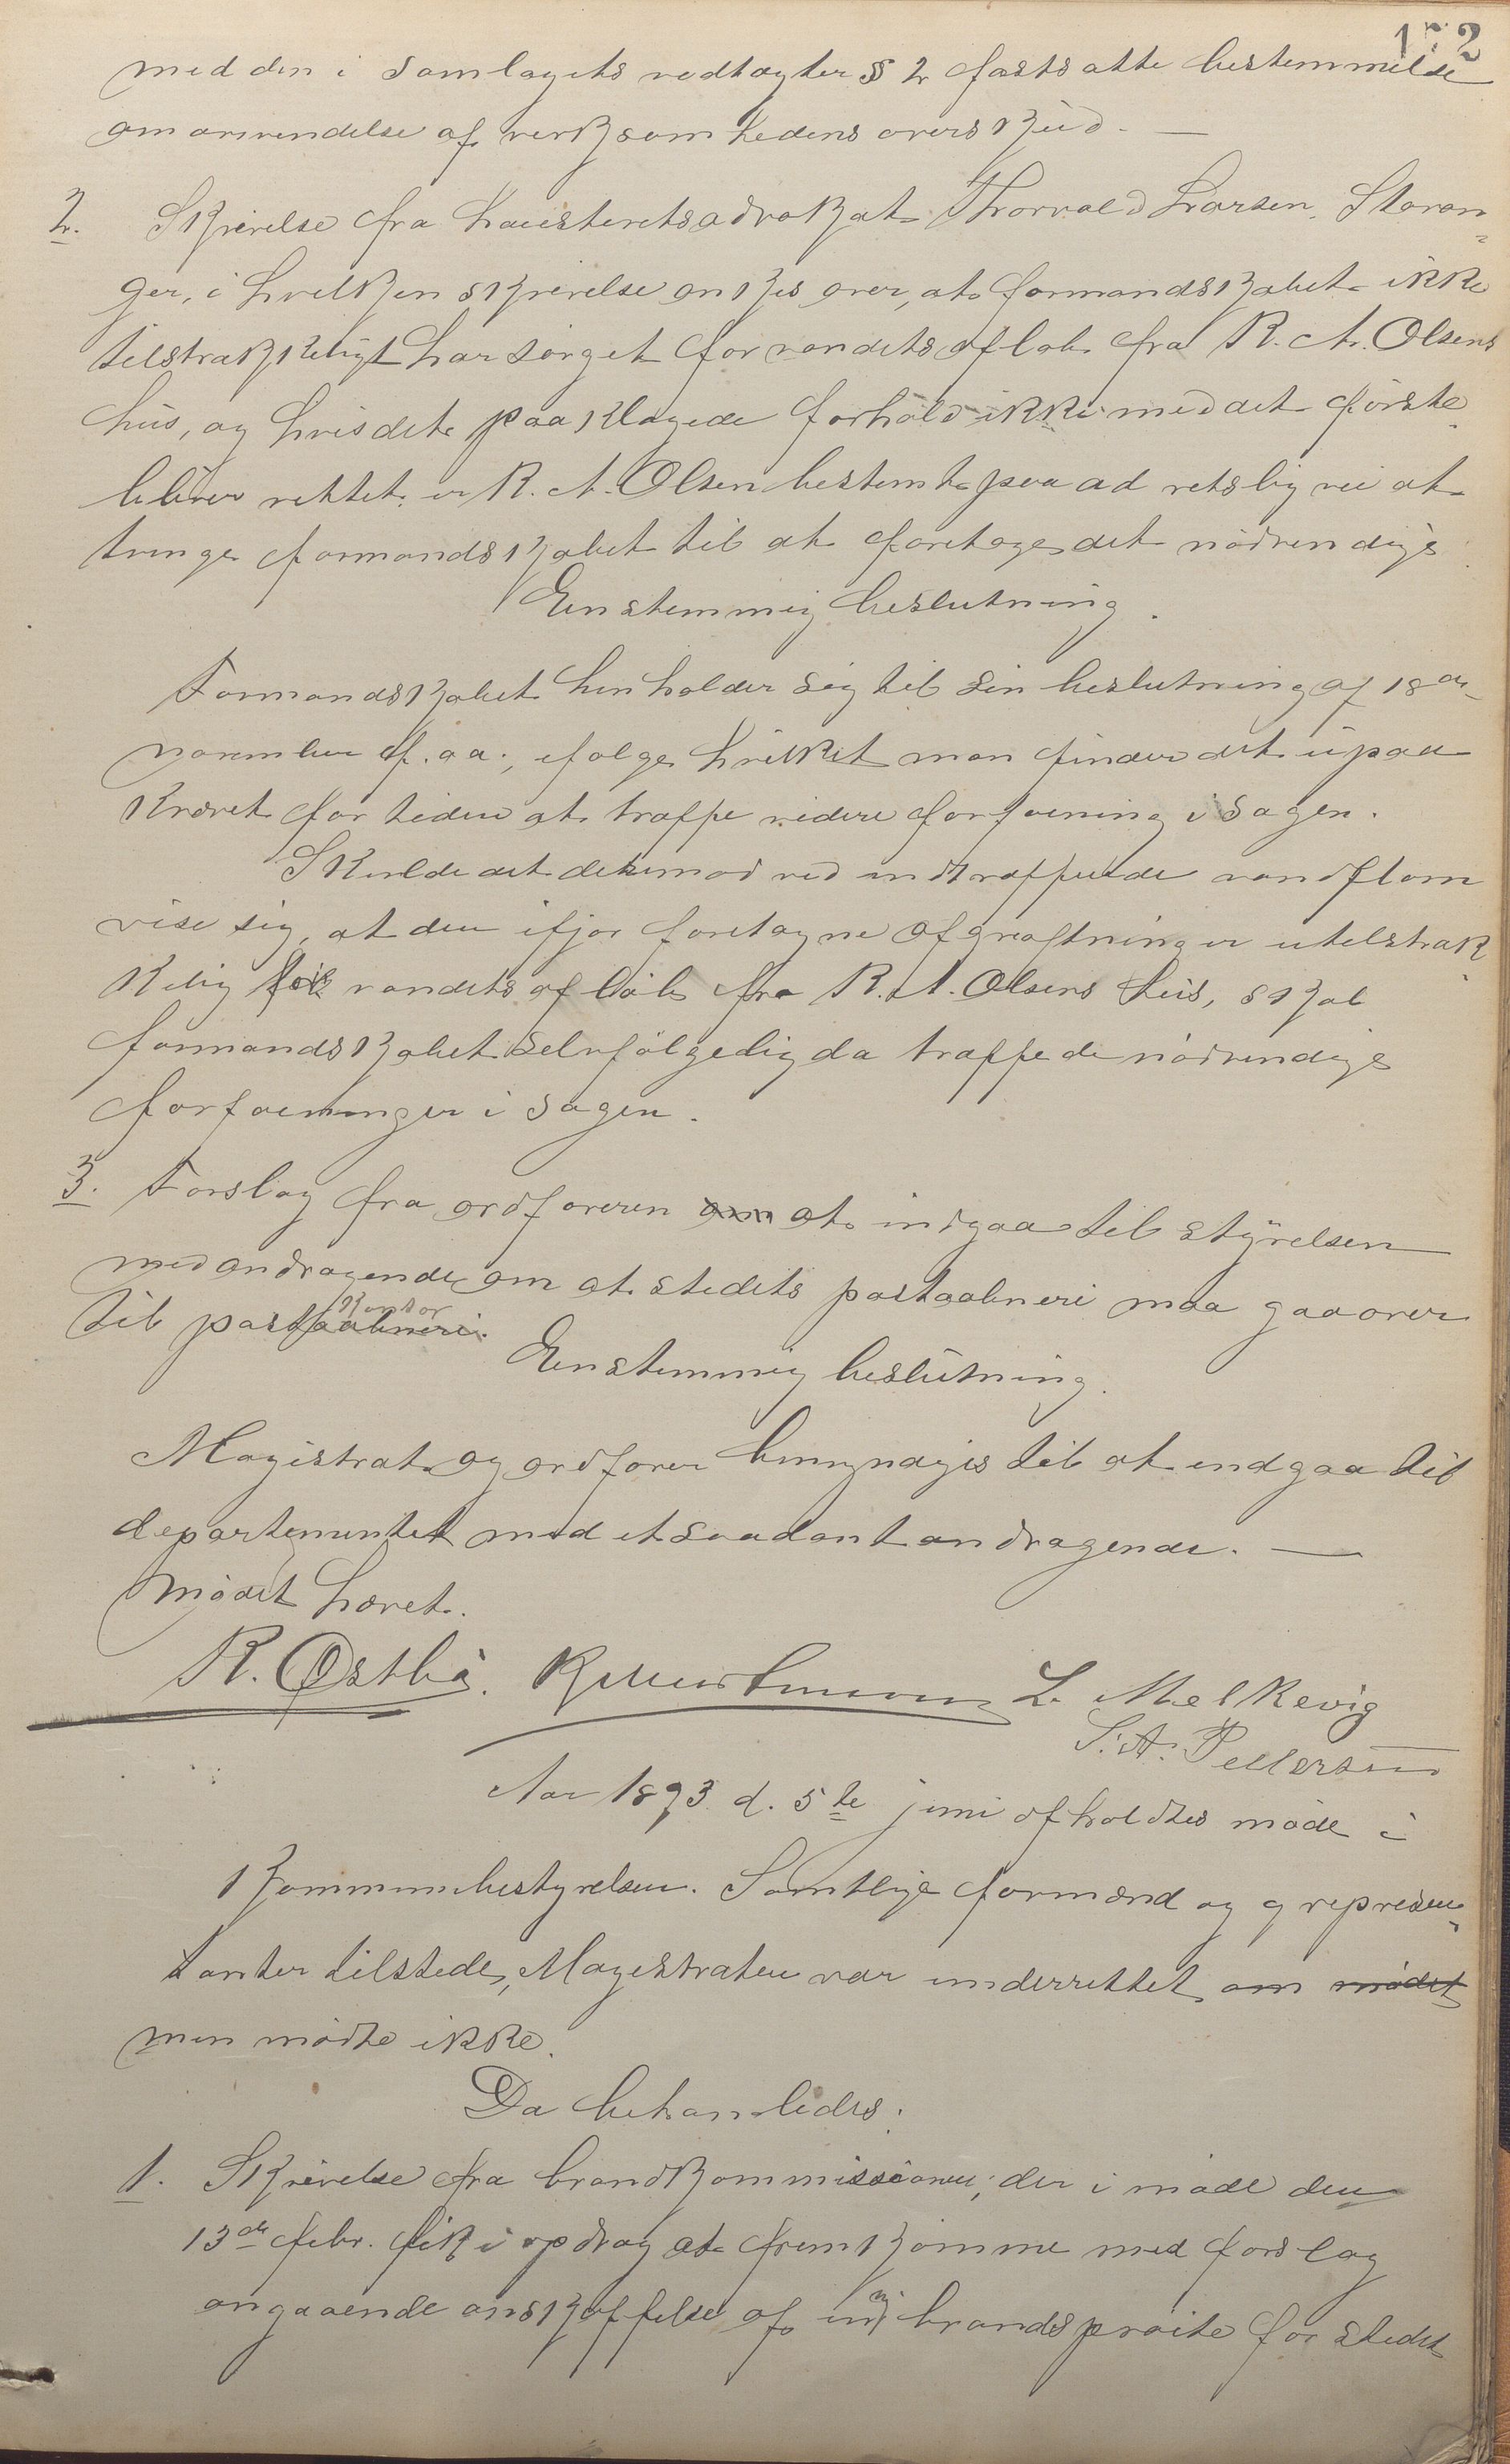 172
med den i samlagets vedtægter § 2 fastsatte bestemmelse
om anvendelse af virksomhedens overskud. —
2. Skrivelse fra høiesteretsadvokat Thorvald Larsen, Stavan-
ger, i hvilken skrivelse ankes over, at formandskabet ikke
tilstrækkeligt har sørget for vandets afløb fra R. A. Olsens
hus, og hvis det paaklagede forhold ikke med det første
bliver rettet er R. A. Olsen bestemt paa ad retslig vei at
tvinge formandskabet til at foretage det nødvendige.
Enstemmig beslutning.
Formandskabet henholder sig til sin beslutning af 18de
november f. aa., ifølge hvilket man finder det upaa
krævet for tiden at træffe videre forføining i sagen.
Skulde det derimod ved indtræffende vandflom
vise sig, at den ifjor foretagne afgrøftning er utilstræk
kelig for vandets afløb fra R. A. Olsens hus, skal
formandskabet selvfølgelig da træffe de nødvendige
forføininger i sagen.
3. Forslag fra ordføreren om at indgaa til styrelsen
med andragende om at stedets postaabneri maa gaa over
til postaabneri. kontor
Enstemmig beslutning.
Magistrat og ordfører bemyndiges til at indgaa til
departementet med et saadant andragende. —
Mødet hævet.
R. Østbø. L. Melkevig
S. A. Pedersen
Aar 1893 d. 5te juni afholdtes møde i
kommunebestyrelsen. Samtlige formænd og 9 repræsen-
tanter tilstede, Magistraten var underrettet om mødet
men mødte ikke.
Da behandledes.
1. Skrivelse fra brandkommissionen, der i møde den
13de febr. fik i opdrag at fremkomme med forslag
angaaende anskaffelse af en ny brandsprøite for stedet